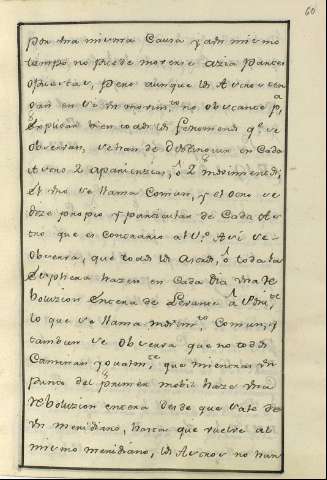 60
por una misma Causa y a un mismo
tiempo no puede moverse azia partes
opuestas, pero aunque los Astros con
dan en su movim.to no obstante p.a
explicar bien todos los fenomenos q.e se
observan, se han de distinguir en Cada
Astro 2 apariencias, ô 2 movimientos;
el uno se llama Comun, y el otro se
dize proprio y particular de Cada As-
tro que es contrario al 1.o Asi se
observa, que todos los Astros, ô toda la
Esphera hazen en Cada dia una Re
boluzion entera de Levante â Poni.te
lo que se llama movim.to Comun, y
tambien se observa que no todos
Caminan ygualm.te, que mientras un
punto del primer mobil haze una
reboluzion entera desde que sale de
un meridiano, hasta que vuelve al
mismo meridiano, los Astros no han